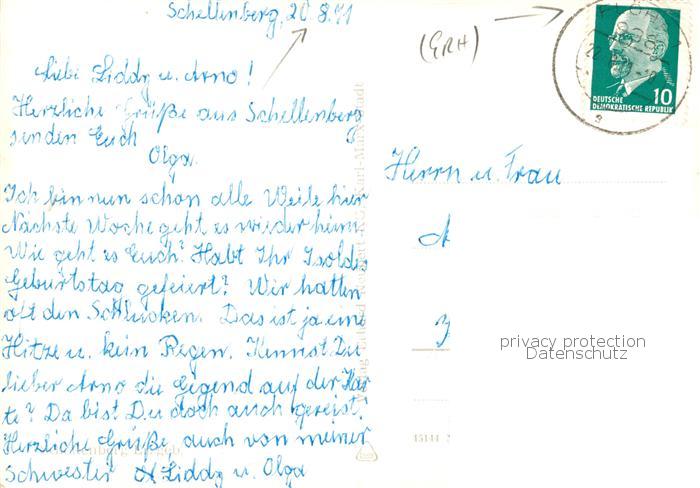 Schellenberg, 20.8.71
(GRH)
Liebe Liddy u. Arno!
Herzliche Grüße aus Schellenberg
senden Euch
Olga.
Ich bin nun schon alle Weile hier
Nächste Woche geht es wieder heim
Wie geht es Euch? Habt Ihr Isoldes
Geburtstag gefeiert? Wir hatten
oft den Schlucken. Das ist ja eine
Hitze u. kein Regen. Kennst Du
lieber Arno die Gegend auf der Kar
te? Da bist Du doch auch gereist.
Herzliche Grüße auch von meiner
Schwester A Liddy u. Olga
DEUTSCHE
DEMOKRATISCHE REPUBLIK
10
Herrn u. Frau
A
privacy protection
Datenschutz
15144